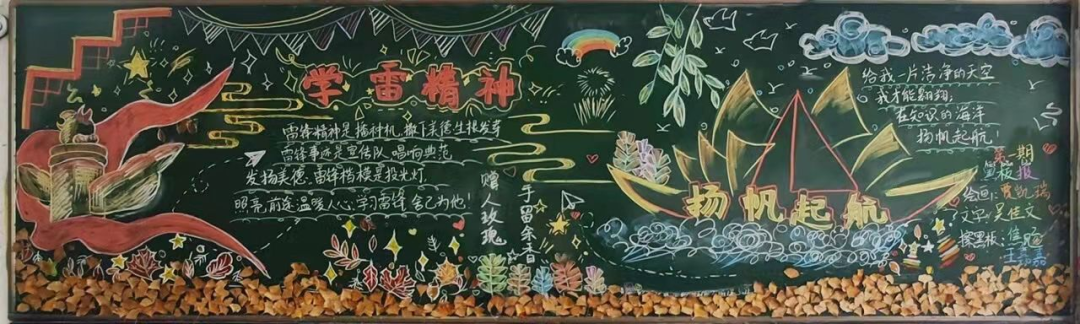 学雷锋精神
雷锋精神是播种机,撒下美德生根发芽
雷锋事迹是宣传队,唱响典范
发扬美德,雷锋楷模是投光灯
照亮前途温暖人心,学习雷锋,舍己为他!
赠人玫瑰
手留余香
扬帆起航
给我一片洁净的天空
我才能翱翔;
在知识的海洋
扬帆起航!
期
报
绘画:贾凯瑞
文字:吴佳文
擦黑板: